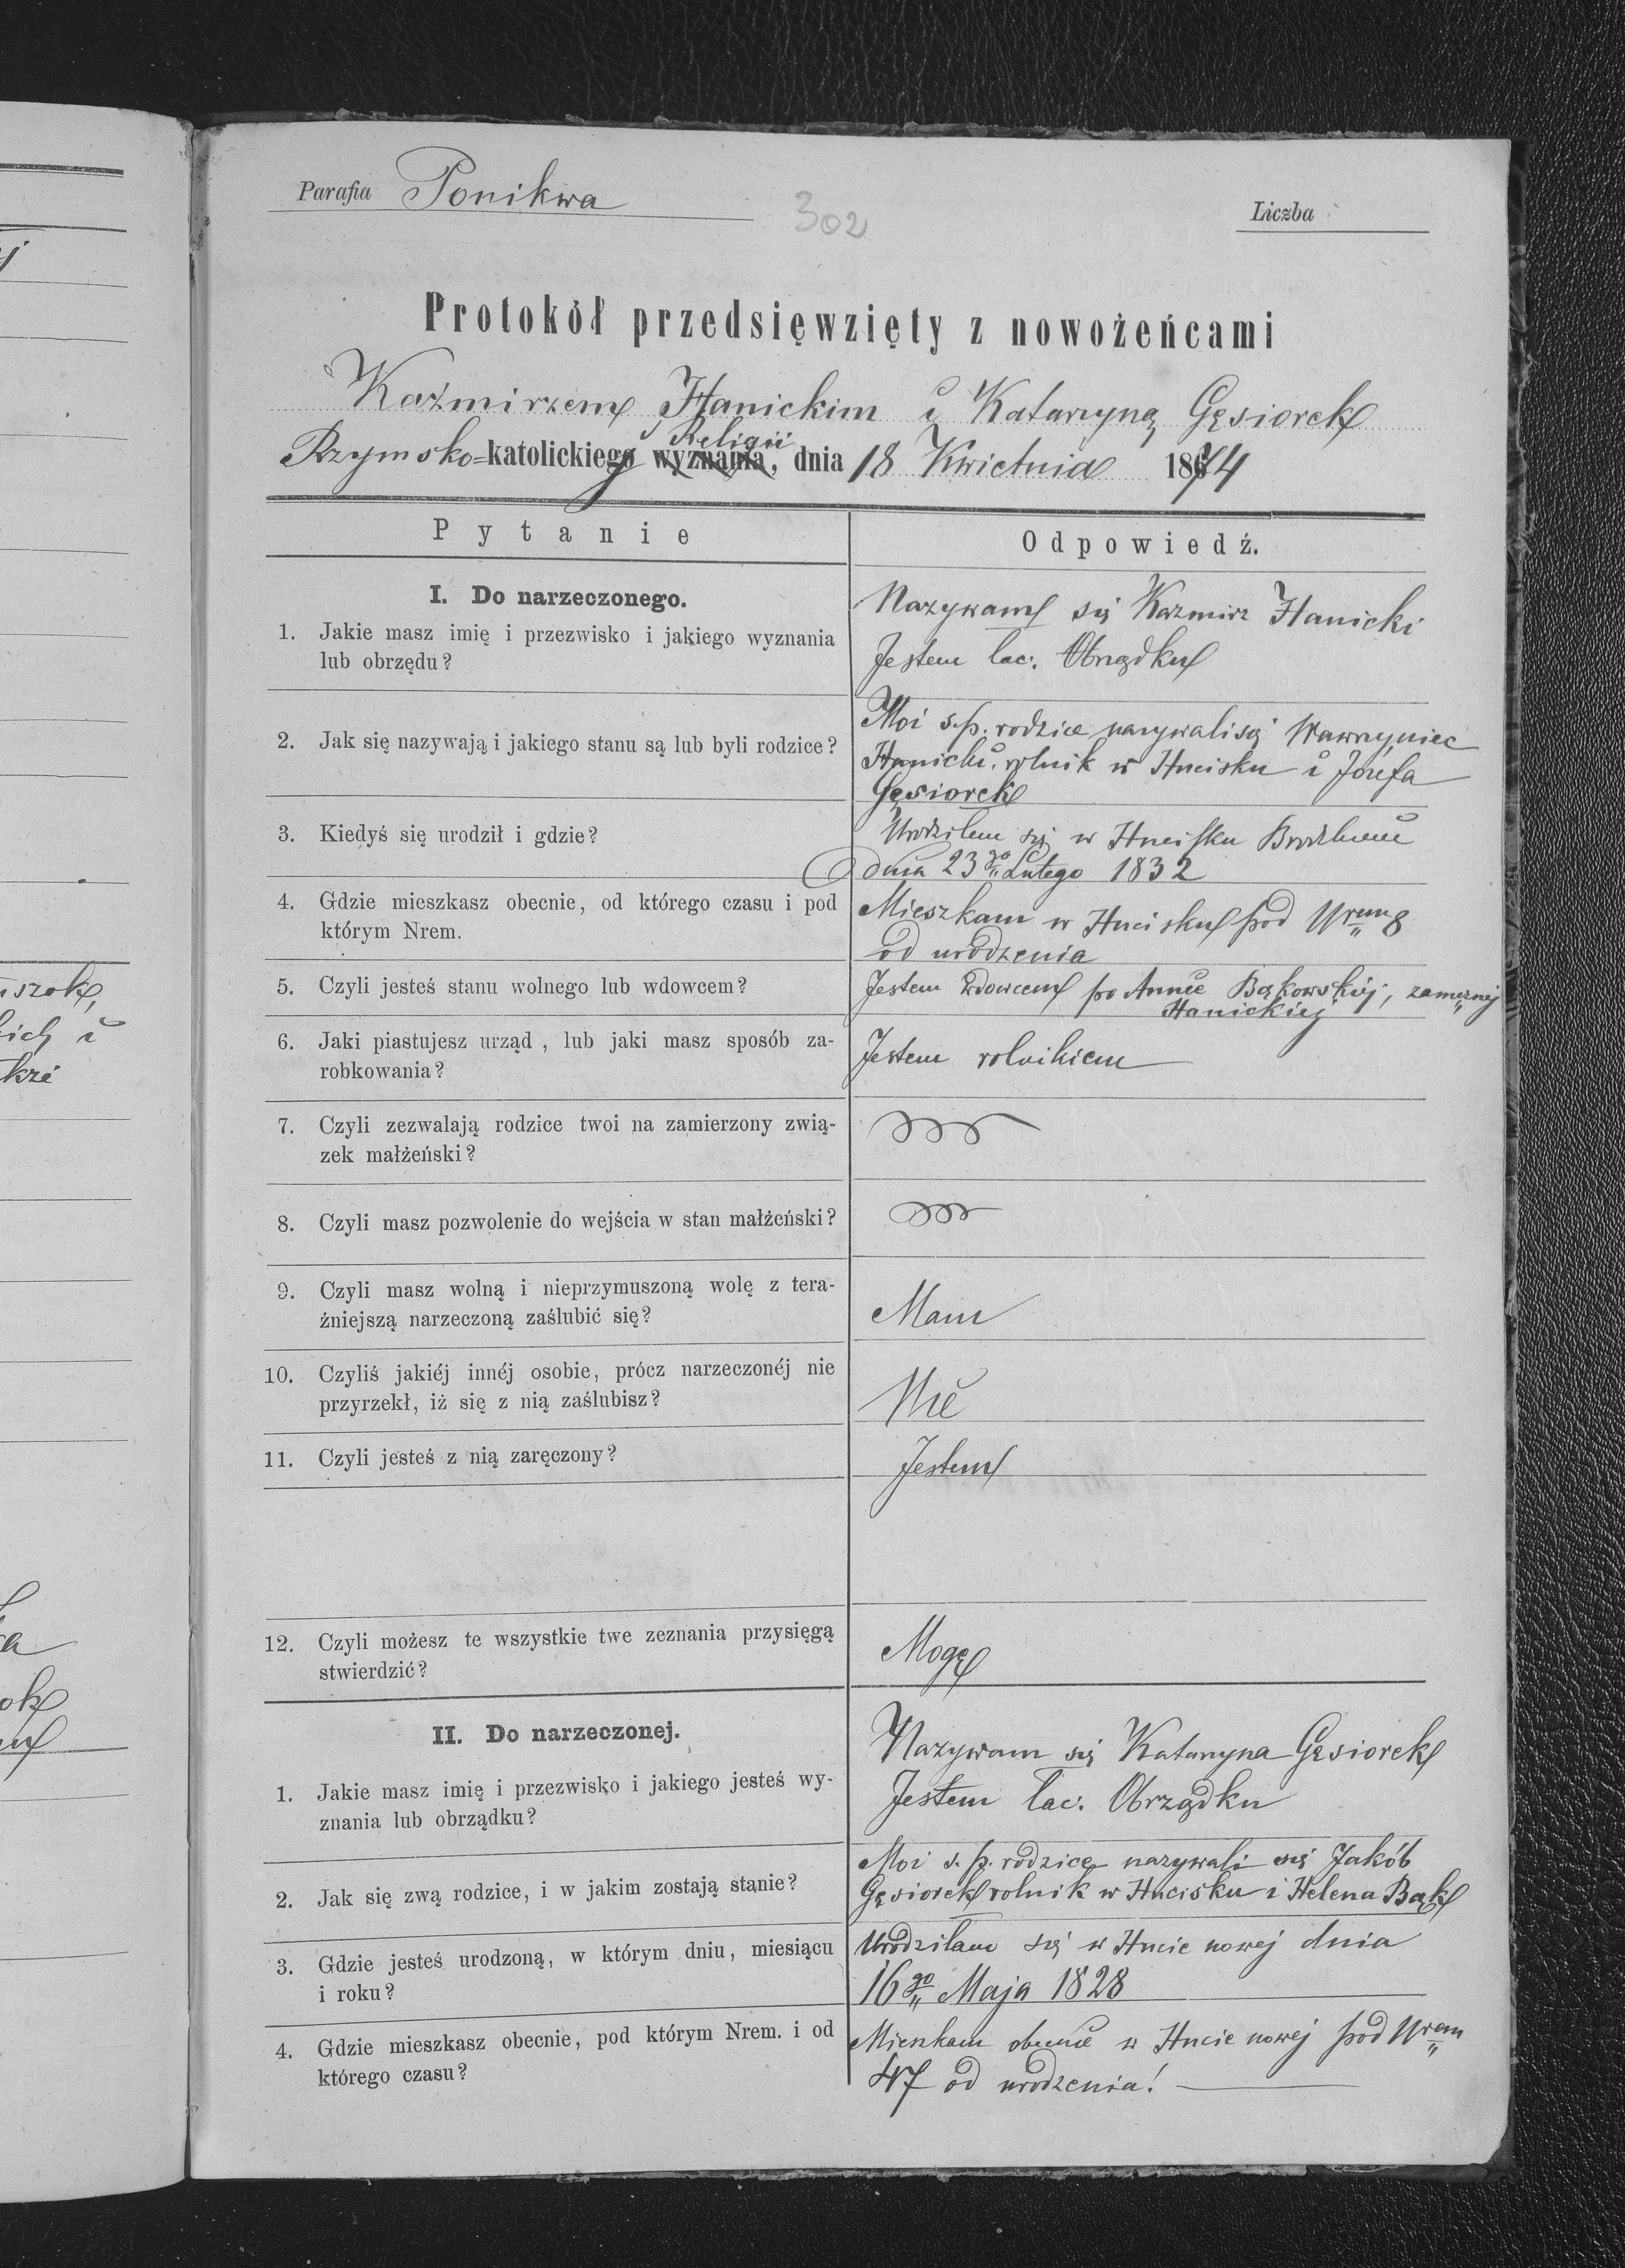 Parafia Ponikwa
302
Liczba
Protokół przedsięwzięty z nowożeńcami
Kaźmirzem Hanickim i Katarzyną Gąsiorek
Religii
Rzymsko-katolickiego wyznania, dnia 18 Kwietnia 1874
Pytanie
Odpowiedź.
I. Do narzeczonego.
1. Jakie masz imię i przezwisko i jakiego wyznania
lub obrzędu?
Nazywam się Kazmirz Hanicki
Jestem łac. Obrządku
2. Jak się nazywają i jakiego stanu są lub byli rodzice?
Moi s.p. rodzice nazywali się Wawrzyniec
Hanicki, rolnik w Hucisku i Józefa
Gąsiorek
3. Kiedyś się urodził i gdzie?
Urodziłem się w Hucisku
dnia 23go Lutego 1832
4. Gdzie mieszkasz obecnie, od którego czasu i pod
którym Nrem.
Mieszkam w Hucisku pod Nrem 8
od urodzenia
5. Czyli jesteś stanu wolnego lub wdowcem?
Jestem wdowcem po Annie Bąkowskiej, zamęznej
Hanickiej
6. Jaki piastujesz urząd, lub jaki masz sposób za-
robkowania?
Jestem rolnikiem
7. Czyli zezwalają rodzice twoi na zamierzony zwią-
zek małżeński?
8. Czyli masz pozwolenie do wejścia w stan małżeński?
9. Czyli masz wolną i nieprzymuszoną wolę z tera-
źniejszą narzeczoną zaślubić się?
Mam
10. Czyliś jakiéj innéj osobie, prócz narzeczonéj nie
przyrzekł, iż się z nią zaślubisz?
Nie
11. Czyli jesteś z nią zaręczony?
Jestem
12. Czyli możesz te wszystkie twe zeznania przysięgą
stwierdzić?
Mogę
II. Do narzeczonej.
1. Jakie masz imię i przezwisko i jakiego jesteś wy-
znania lub obrządku?
Nazywam się Katarzyna Gąsiorek
Jestem łac. Obrządku
2. Jak się zwą rodzice, i w jakim zostają stanie?
Moi s. p. rodzice nazywali się Jakób
Gąsiorek rolnik w Hucisku i Helena Bąk
3. Gdzie jesteś urodzoną, w którym dniu, miesiącu
i roku?
Urodziłam się w Hucie nowej dnia
16go Maja 1828
4. Gdzie mieszkasz obecnie, pod którym Nrem. i od
którego czasu?
Mieszkam obecnie w Hucie nowej pod Nrem
47 od urodzenia!